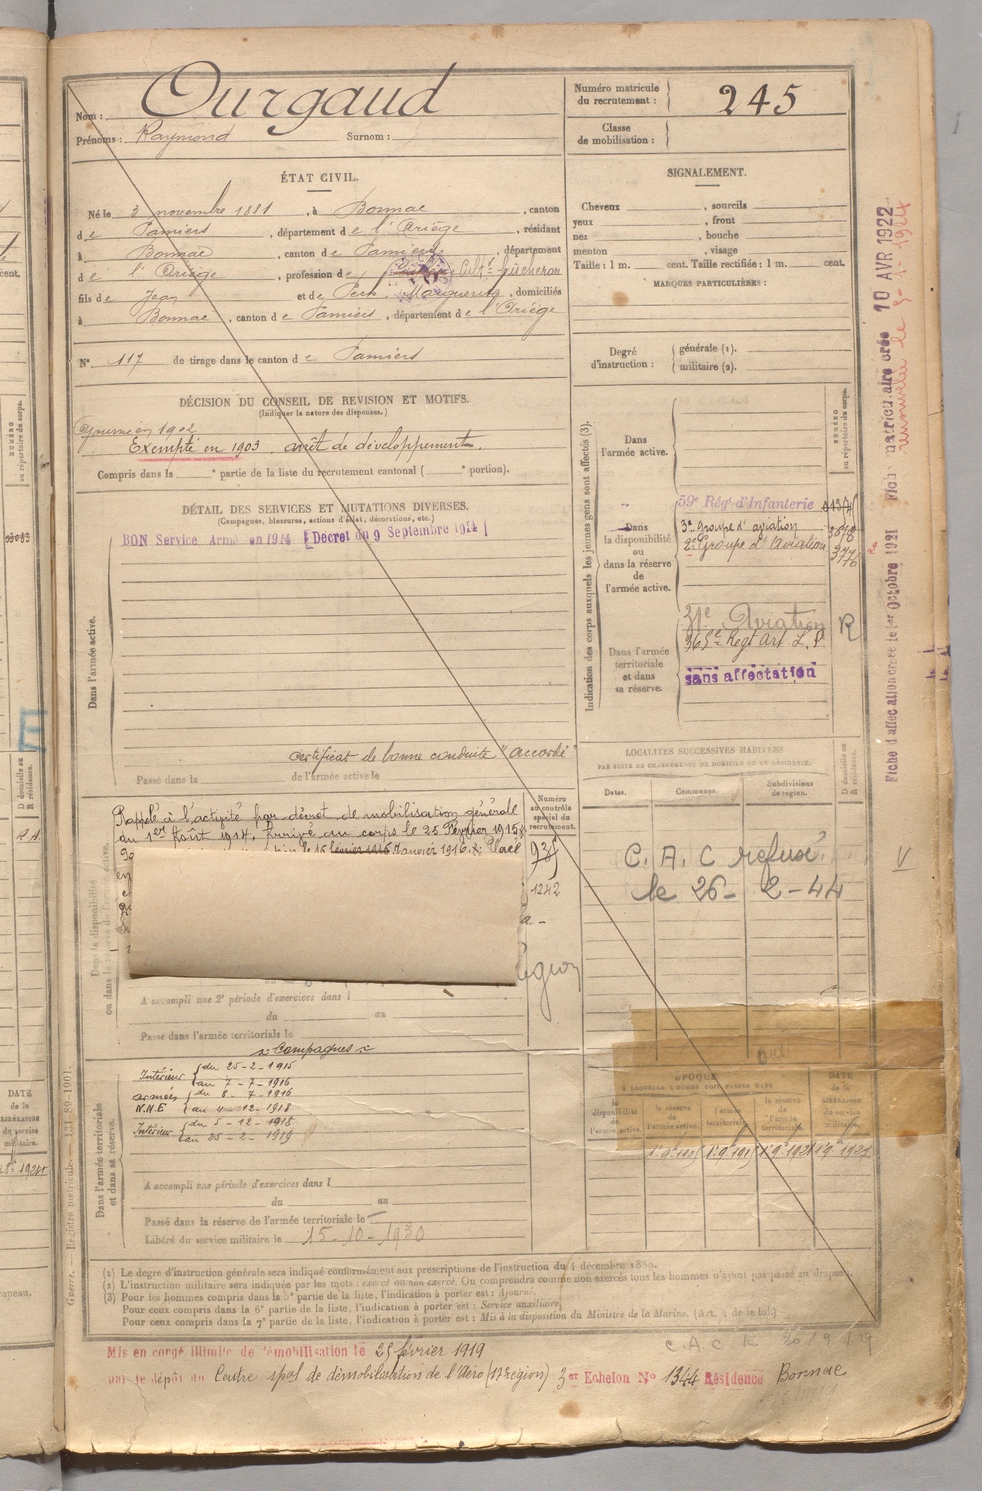 Nom : Ourgaud
Prénoms : Raymond Surnom :
Numéro matricule du recrutement : 245
Classe de mobilisation :
ÉTAT CIVIL.
Né le 3 novembre 1881, à Bonnac, canton
de Pamiers, département de l'Ariège, résidant
à Bonnac, canton de Pamiers, département
de l'Ariège, profession de Cultr bûcheron
fils de Jean et de Marguerite, domiciliés
à Bonnac, canton de Pamiers, département de l'Ariège
N° 117 de tirage dans le canton de Pamiers
SIGNALEMENT.
Cheveux , sourcils
yeux , front
nez , bouche
menton , visage
Taille : 1 m. cent. Taille rectifiée : 1 m. cent.
MARQUES PARTICULIÈRES :
Degré d'instruction : générale (1).
militaire (2).
DÉCISION DU CONSEIL DE REVISION ET MOTIFS.
(Indiquer la nature des dispenses.)
Ajourné en 1902
Exempté en 1903. arrêt de développement.
Compris dans la e partie de la liste du recrutement cantonal ( e portion).
DÉTAIL DES SERVICES ET MUTATIONS DIVERSES.
(Campagnes, blessures, actions d'éclat, décorations, etc.)
BON Service Armé en 1914 (Decret du 9 Septembre 1914)
Dans l'armée active.
certificat de bonne conduite "accordé"
Passé dans la de l'armée active le
Indication des corps auxquels les jeunes gens sont affectés (3).
NUMÉRO au répertoire du corps.
Dans l'armée active.
Dans la disponibilité ou dans la réserve de l'armée active.
59e Régt d'Infanterie
3e groupe d'aviation
2e Groupe d'Aviation 3776
Dans l'armée territoriale et dans sa réserve.
31e Aviation R
Regt Art L. P
sans affectation
LOCALITÉS SUCCESSIVES HABITÉES
PAR SUITE DE CHANGEMENTS DE DOMICILE OU DE RÉSIDENCE.
Dates. Communes. Subdivisions de région.
D domicile ou R résidence.
C. A. C refusé
le 26-2-44
Numéro au contrôle spécial du recrutement.
1242
Rappelé à l'activité par décret de mobilisation générale
du 1er Août 1914. Arrivé au corps le 25 Février 1915
le 15 février 1916 Janvier 1916. Placé
A accompli une 2e période d'exercices dans l
du au
Passé dans l'armée territoriale le
Campagnes
Intérieur du 25-2-1915
au 7-7-1916
armées du 8-7-1916
N.N.E au 4-12-1918
Intérieur du 5-12-1918
au 25-2-1919
Dans l'armée territoriale et dans sa réserve.
A accompli une période d'exercices dans l
du au
Passé dans la réserve de l'armée territoriale le
Libéré du service militaire le 15-10-1930
ÉPOQUE
À LAQUELLE L'HOMME DOIT PASSER DANS
la disponibilité de l'armée active.
la réserve de l'armée active.
l'armée territoriale.
la réserve de l'armée territoriale.
DATE de la LIBÉRATION du service militaire.
(1) Le degré d'instruction générale sera indiqué conformément aux prescriptions de l'instruction du 4 décembre 1889.
(2) L'instruction militaire sera indiquée par les mots : exercé ou non exercé. On comprendra comme non exercés tous les hommes n'ayant pas passé au drapeau.
(3) Pour les hommes compris dans la 5e partie de la liste, l'indication à porter est : Ajourné.
Pour ceux compris dans la 6e partie de la liste, l'indication à porter est : Service auxiliaire.
Pour ceux compris dans la 7e partie de la liste, l'indication à porter est : Mis à la disposition du Ministre de la Marine. (Art. 4 de la loi.)
Mis en congé illimité de démobilisation le 25 février 1919
par le dépôt du Centre spal de démobilisation de l'Aéro (17e région) 3er Echelon N° 1344 Résidence Bonnac
Fiche d'affectation créée le 1er Octobre 1921 Fiche matriculaire créée 10 AVR 1922
renouvelée le
Guerre. — Registre matricule. — 131-89-1901.